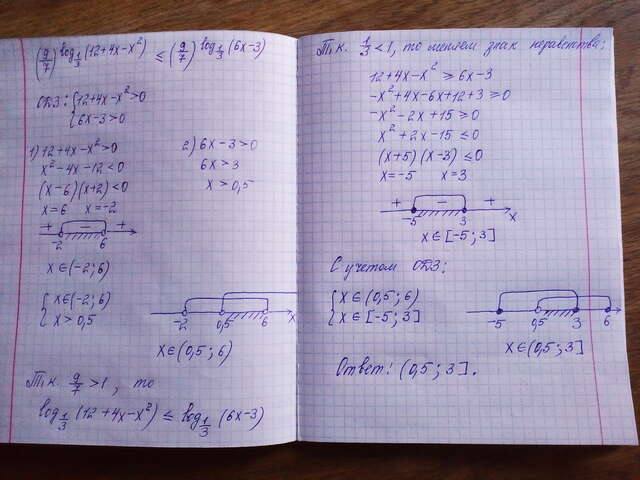 (9/7)^log_{1/3}(12+4x-x²) ≤ (9/7)^log_{1/3}(6x-3)
ОДЗ: {12+4x-x²>0
{6x-3>0
1) 12+4x-x²>0
x²-4x-12<0
(x-6)(x+2)<0
x=6 x=-2
+ - +
-2 6
x∈(-2;6)
2) 6x-3>0
6x>3
x>0,5
{x∈(-2;6)
{x>0,5
-2 0,5 6 x
x∈(0,5;6)
Т.к. 9/7>1, то
log_{1/3}(12+4x-x²) ≤ log_{1/3}(6x-3)
Т.к. 1/3<1, то меняем знак неравенства:
12+4x-x² ≥ 6x-3
-x²+4x-6x+12+3 ≥ 0
-x²-2x+15 ≥ 0
x²+2x-15 ≤ 0
(x+5)(x-3) ≤ 0
x=-5 x=3
+ - +
-5 3 x
x∈[-5;3]
С учетом ОДЗ:
{x∈(0,5;6)
{x∈[-5;3]
-5 0,5 3 6 x
x∈(0,5;3]
Ответ: (0,5;3].